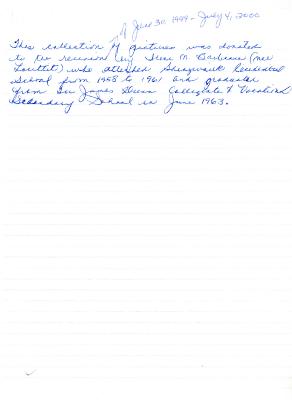 of June 30, 1999 - July 4, 2000
This collection of pictures was donated
to the reunion by Irene M. Barbeau (nee
Louttit) who attended Shingwauk Residential
School from 1958 to 1961 and graduated
from Sir James Dunn Collegiate & Vocational
Secondary School in June 1963.